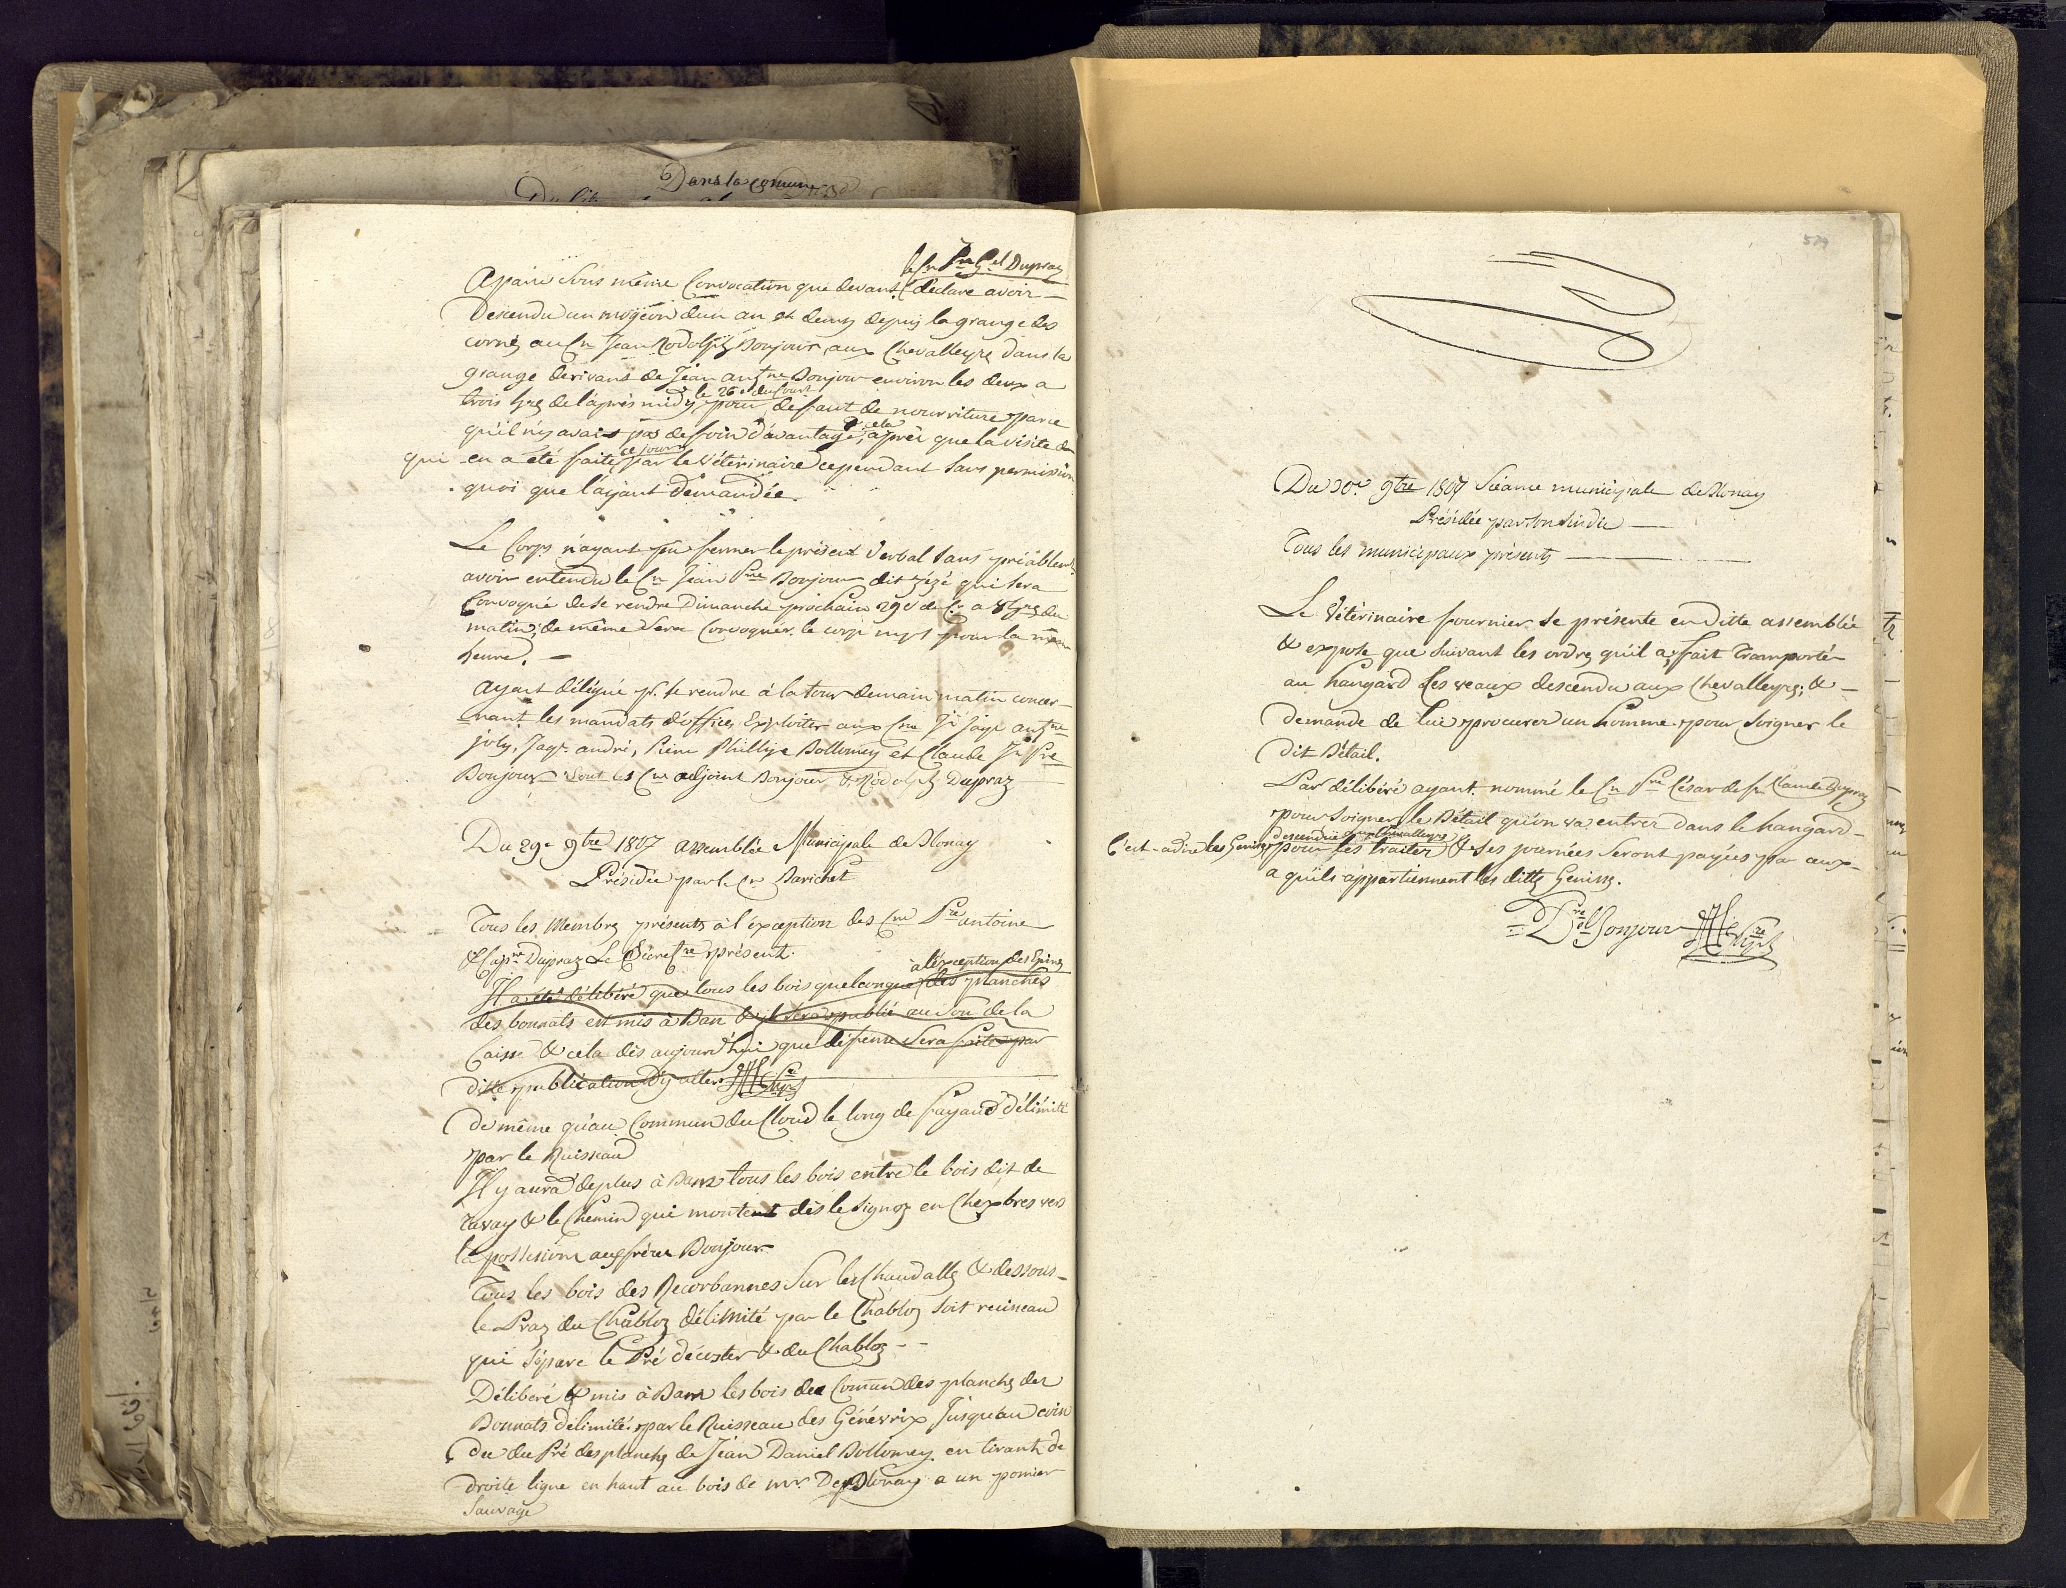 Dans la comune
le Cn Pre Gel Dupraz
Aparu sous même Convocation que devant, déclare avoir
Descendu un mogeon dun an et demy depuis la grange des
cornes au Cn Jean Rodolph Bonjour aux Chevalleyre dans la
grange derivant de Jean antne Bonjour environ les deux a
le 26e du Court
trois hres de l'aprés midy, pour deffaut de nourriture parce
cela
qu'il n'y avait pas de foin d'avantage, après que la visite
ce jour
qui en a été faite par le Vétérinaire cependant sans permission
quoi que l'ayant demandée.
Le Corps n'ayant pu fermer le présent Verbal sans préablemt
avoir entendu le Cn Jean Pre Bonjour dit zézé qui sera
Convoqué de se rendre Dimanche prochain 29e de Ct a 8 hres du
matin; de même sera Convoquer le corp mpl pour la même
heure. —
Ayant délégué pr. se rendre à la tour demain matin concer-
nant les mandats d'offices Exploiter aux Cns antne
joly, Jaqs andré, Pierre Phillipe Bollomey et Claude Jn Pre
Bonjour sont les Cns adjoint Bonjour & Rodolph Dupraz
Du 29e 9bre 1807 assemblée Municipale de Blonay
Présidée par le Cn Barichet
Tous les Membres présents à l'éxception des Cns Pre antoine
& Capne Dupraz Le Sécretre présent.
à l'éxception des Epines
Il a été délibéré que tous les bois quelconque des planches
des bonnats est mis à Ban & il sera publié au son de la
Caisse & cela dès aujourd'hui que défense sera faite par
ditte publication d'y aller
de même qu'au Commun du Cloud le long de fayaud délimité
par le Ruisseau
Il y aura de plus à Bans tous les bois entre le bois dit de
ravay & le Chemin qui montent dès le signoz en Chexbres vers
la possession aux frères Bonjour
Tous les bois des Recorbannes sur les Chaudalles & dessous
le Praz du Chabloz délimité par le Chabloz soit ruisseau
qui sépare le Pré decoster & du Chabloz - -
Délibéré & mis à Bans les bois de Comun des planches des
Bonnats délimité par le Ruisseau des Génévrix Jusqu'au coin
du du Pré des planches de Jean Daniel Bollomey en tirant de
droite ligne en haut au bois de mr. De Blonay a un pomier
Sauvage
519
Du 30e 9bre 1807 Séance municipale de Blonay
Présidée par son sindic
Tous les municipaux présents
Le Vétérinaire fournier se présente en ditte assemblée
& expose que suivant les ordres qu'il a, fait Transporté
au hangard les veaux descendu aux Chevalleyres; &
demande de lui procurer un homme pour soigner le
dit Bétail.
Par délibéré ayant nommé le Cn Pre César de fu Claude Dupraz
pour soigner le Bétail qu'on va entrer dans le hangard
descendue aux Chevalleyres
C'est-adire les Genisses pour les traiter & ses journées seront payées par ceux
a qu'ils appartiennent les dittes Genisses.
Bonjour